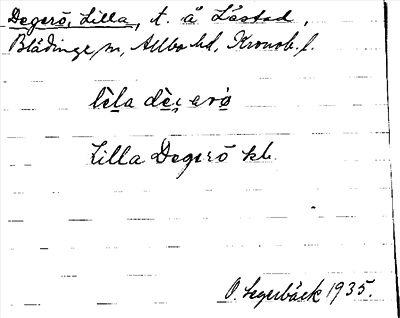 Degerö, Lilla, t. å Låstad,
Blädinge sn, Allbo hd, Kronob. l.
lìla dè̢gerø
Lilla Degerö kb.
O. Segerbäck 1935.